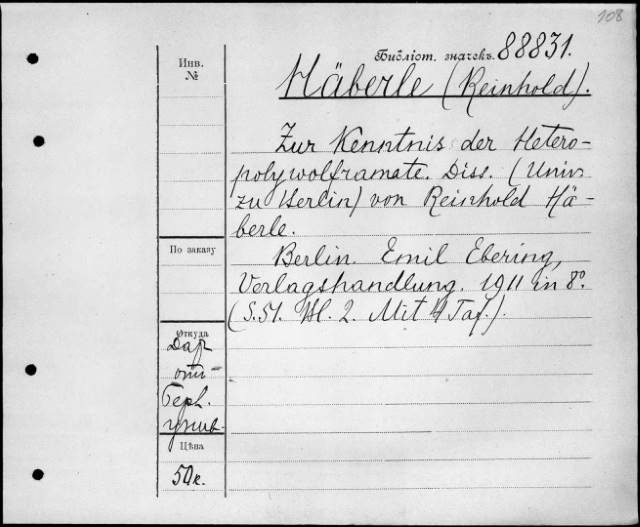 108
Библіот. значекъ. 88831.
Инв.
№
Häberle (Reinhold).
Zur Kenntnis der Hetero-
polywolframate. Diss. (Univ.
zu Berlin) von Reinhold Hä-
berle.
По заказу
Berlin. Emil Ebering,
Verlagshandlung. 1911 in 8º.
(S. 51. Bl. 2. Mit 4 Taf.).
Откуда
Дар
отъ
Берл.
унив.
Цѣна
50к.